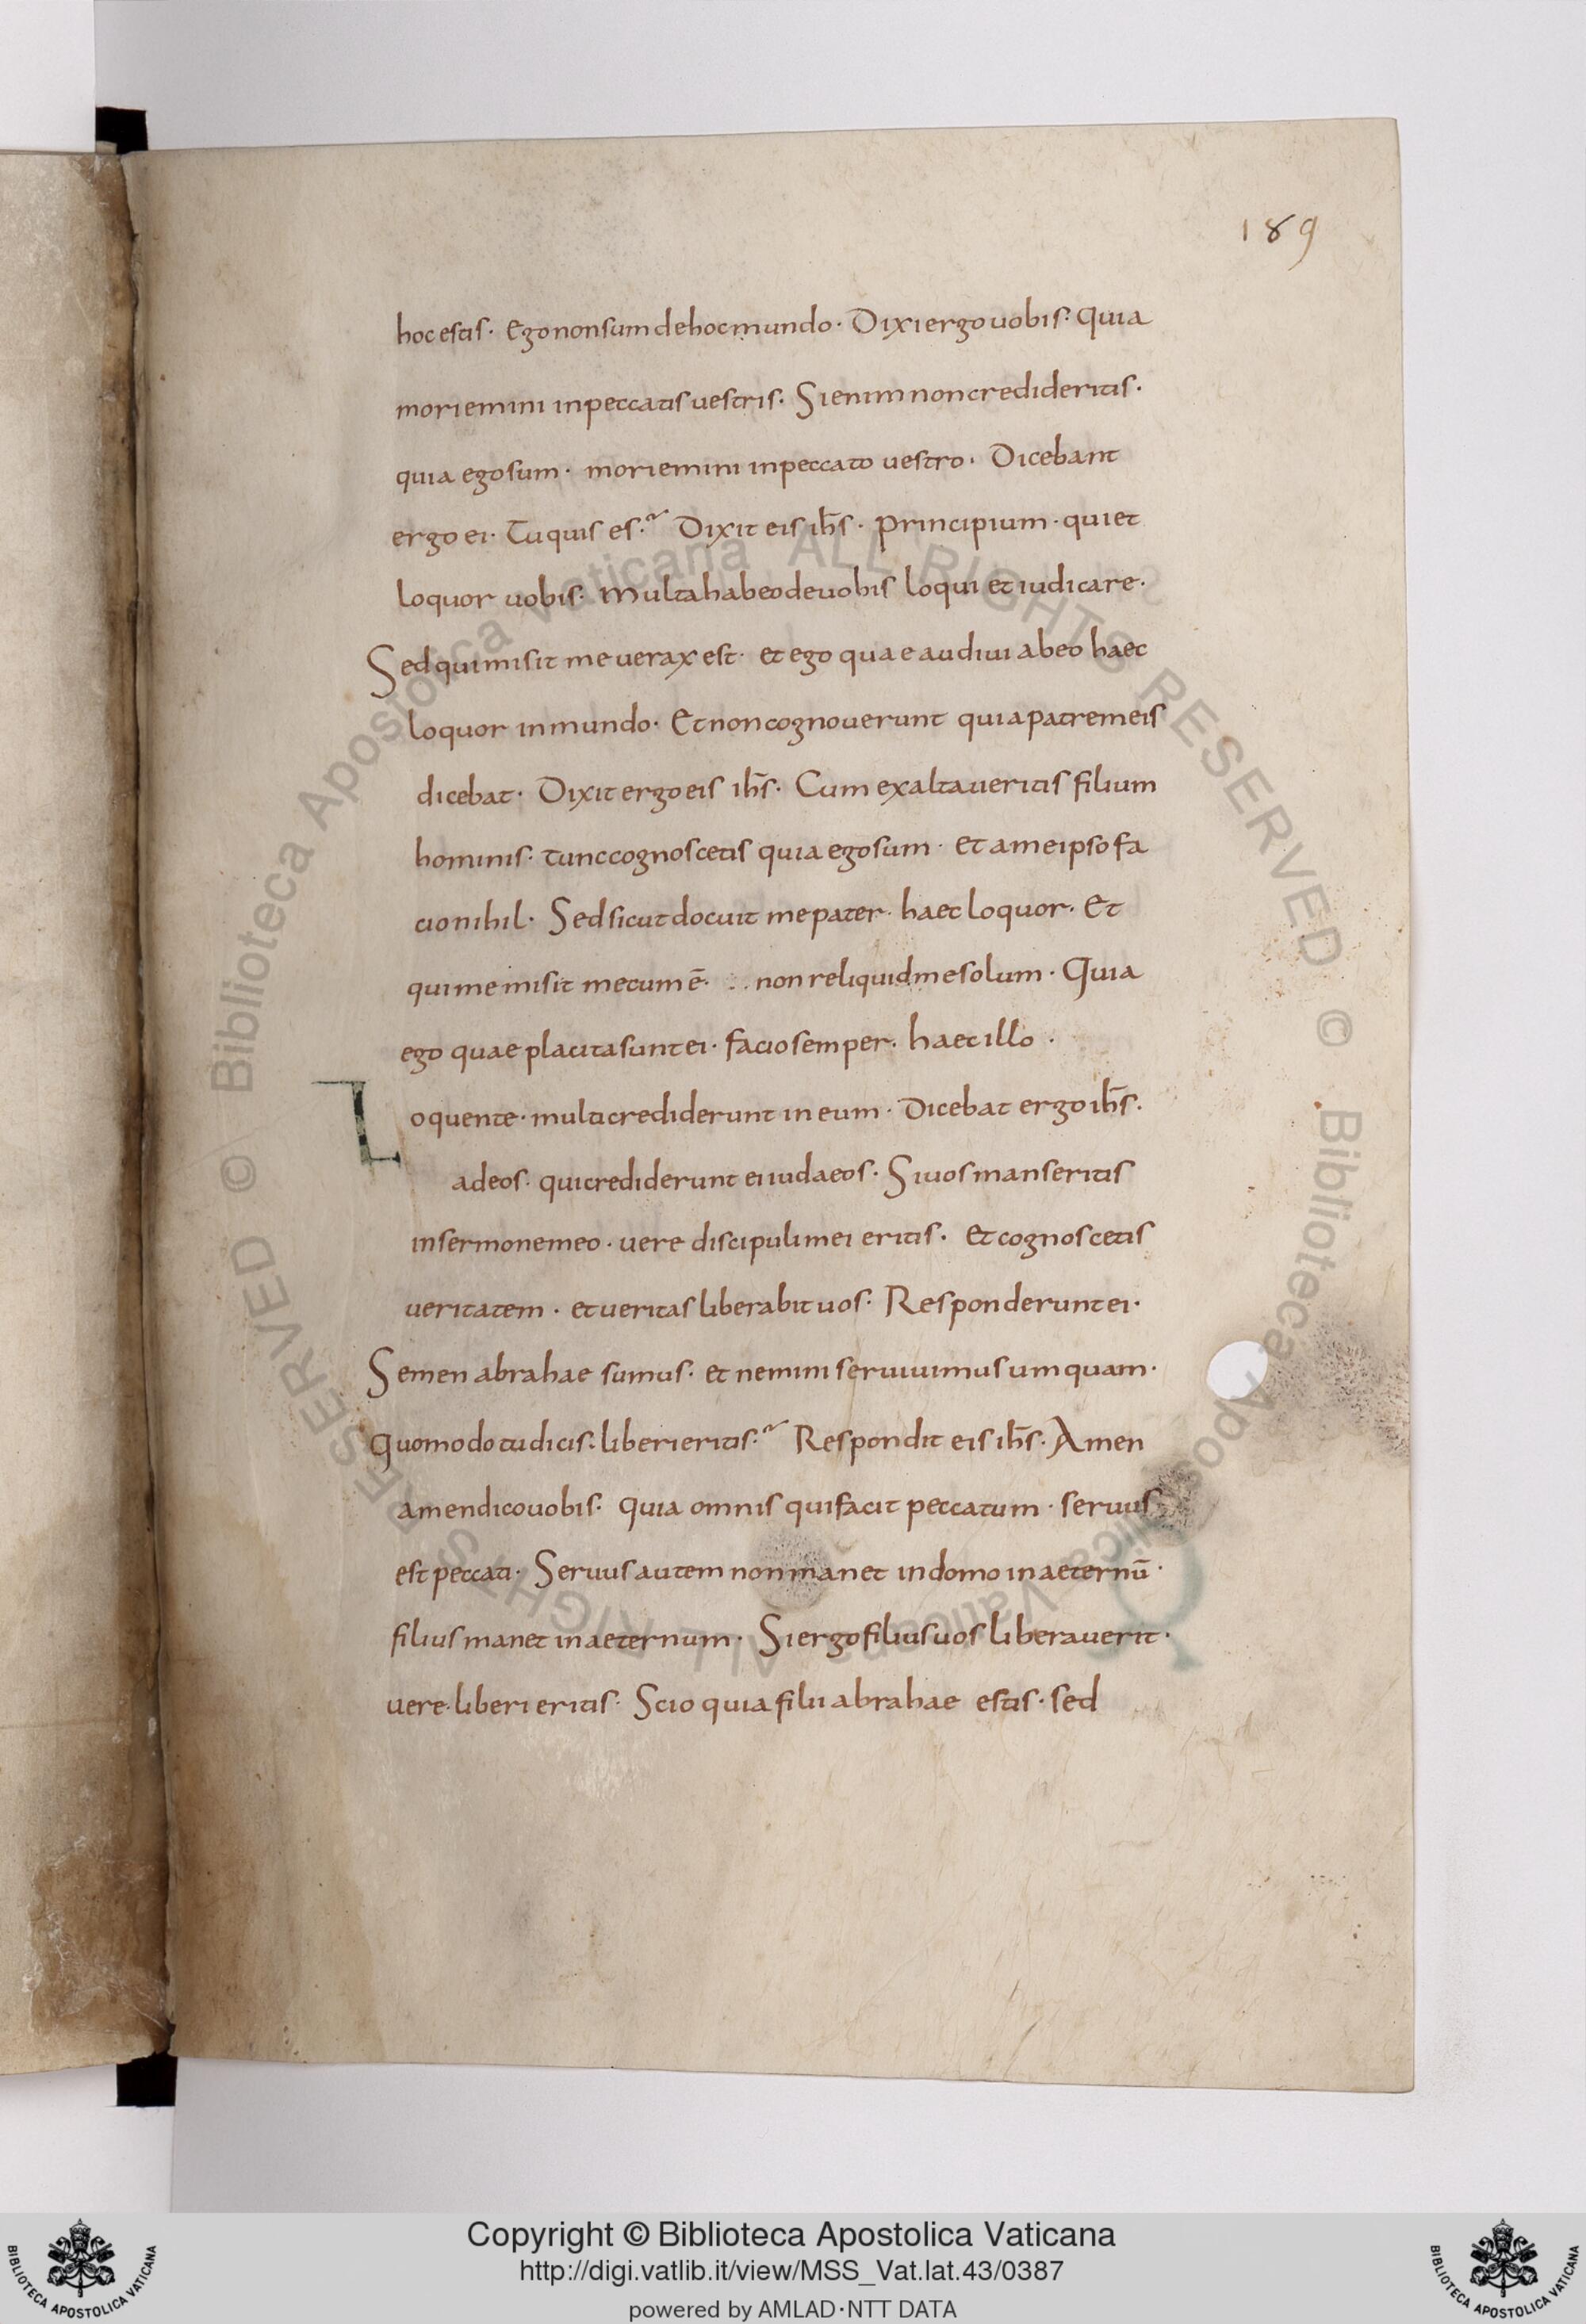 189
hoc estis· Ego non sum de hoc mundo· Dixi ergo uobis· quia
moriemini in peccatis uestris· Si enim non credideritis·
quia ego sum· moriemini in peccato uestro· Dicebant
ergo ei· Tu quis es·? Dixit eis ih̅s· principium· qui et
loquor uobis· Multa habeo de uobis loqui et iudicare·
Sed qui misit me uerax est· et ego quae audiui ab eo haec
loquor in mundo· Et non cognouerunt quia patrem eis
dicebat· Dixit ergo eis ih̅s· Cum exaltaueritis filium
hominis· tunc cognoscetis quia ego sum· et a me ipso fa
cio nihil· Sed sicut docuit me pater· haec loquor· Et
qui me misit mecum ē· non reliquid me solum· Quia
ego quae placita sunt ei· facio semper· haec illo·
Loquente· multi crediderunt in eum· Dicebat ergo ih̅s·
ad eos· qui crediderunt ei iudaeos· Si uos manseritis
in sermone meo· uere discipuli mei eritis· et cognoscetis
ueritatem· et ueritas liberabit uos· Responderunt ei·
Semen abrahae sumus· et nemini seruiuimus umquam·
quomodo tu dicis· liberi eritis·? Respondit eis ih̅s· Amen
amen dico uobis· quia omnis qui facit peccatum· seruus
est peccati· Seruus autem non manet in domo in aeternū·
filius manet in aeternum· Si ergo filius uos liberauerit·
uere· liberi eritis· Scio quia filii abrahae estis· sed
© Biblioteca Apostolica Vaticana ALL RIGHTS RESERVED © Biblioteca Apostolica Vaticana ALL RIGHTS RESERVED
BIBLIOTECA APOSTOLICA VATICANA
Copyright © Biblioteca Apostolica Vaticana
http://digi.vatlib.it/view/MSS_Vat.lat.43/0387
powered by AMLAD·NTT DATA
BIBLIOTECA APOSTOLICA VATICANA